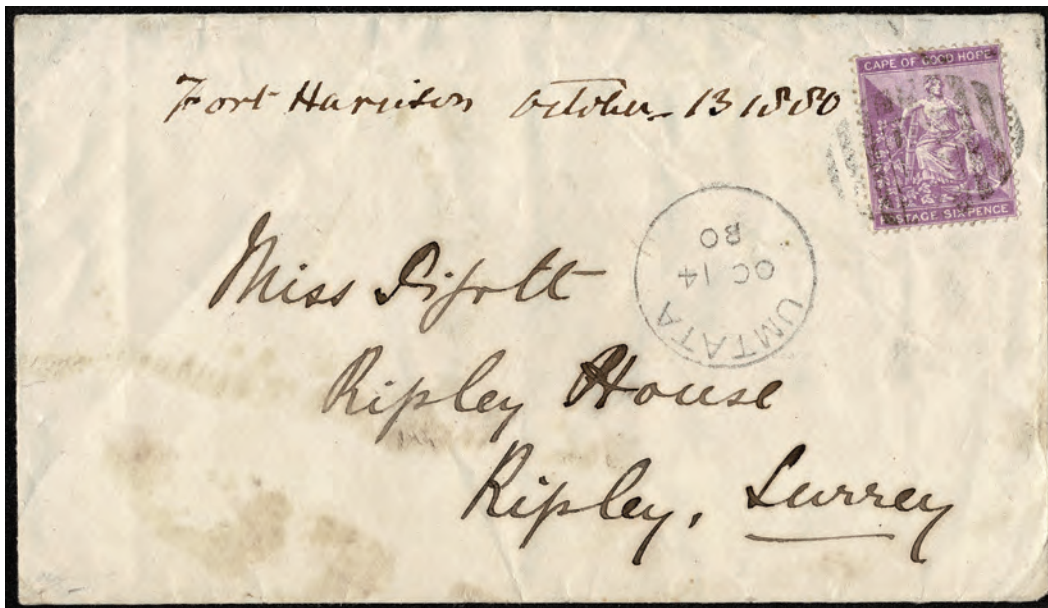 Fort Harrison October 13 1880
CAPE OF GOOD HOPE
POSTAGE SIXPENCE
UMTATA
OC 14
80
Miss
Ripley House
Ripley, Surrey